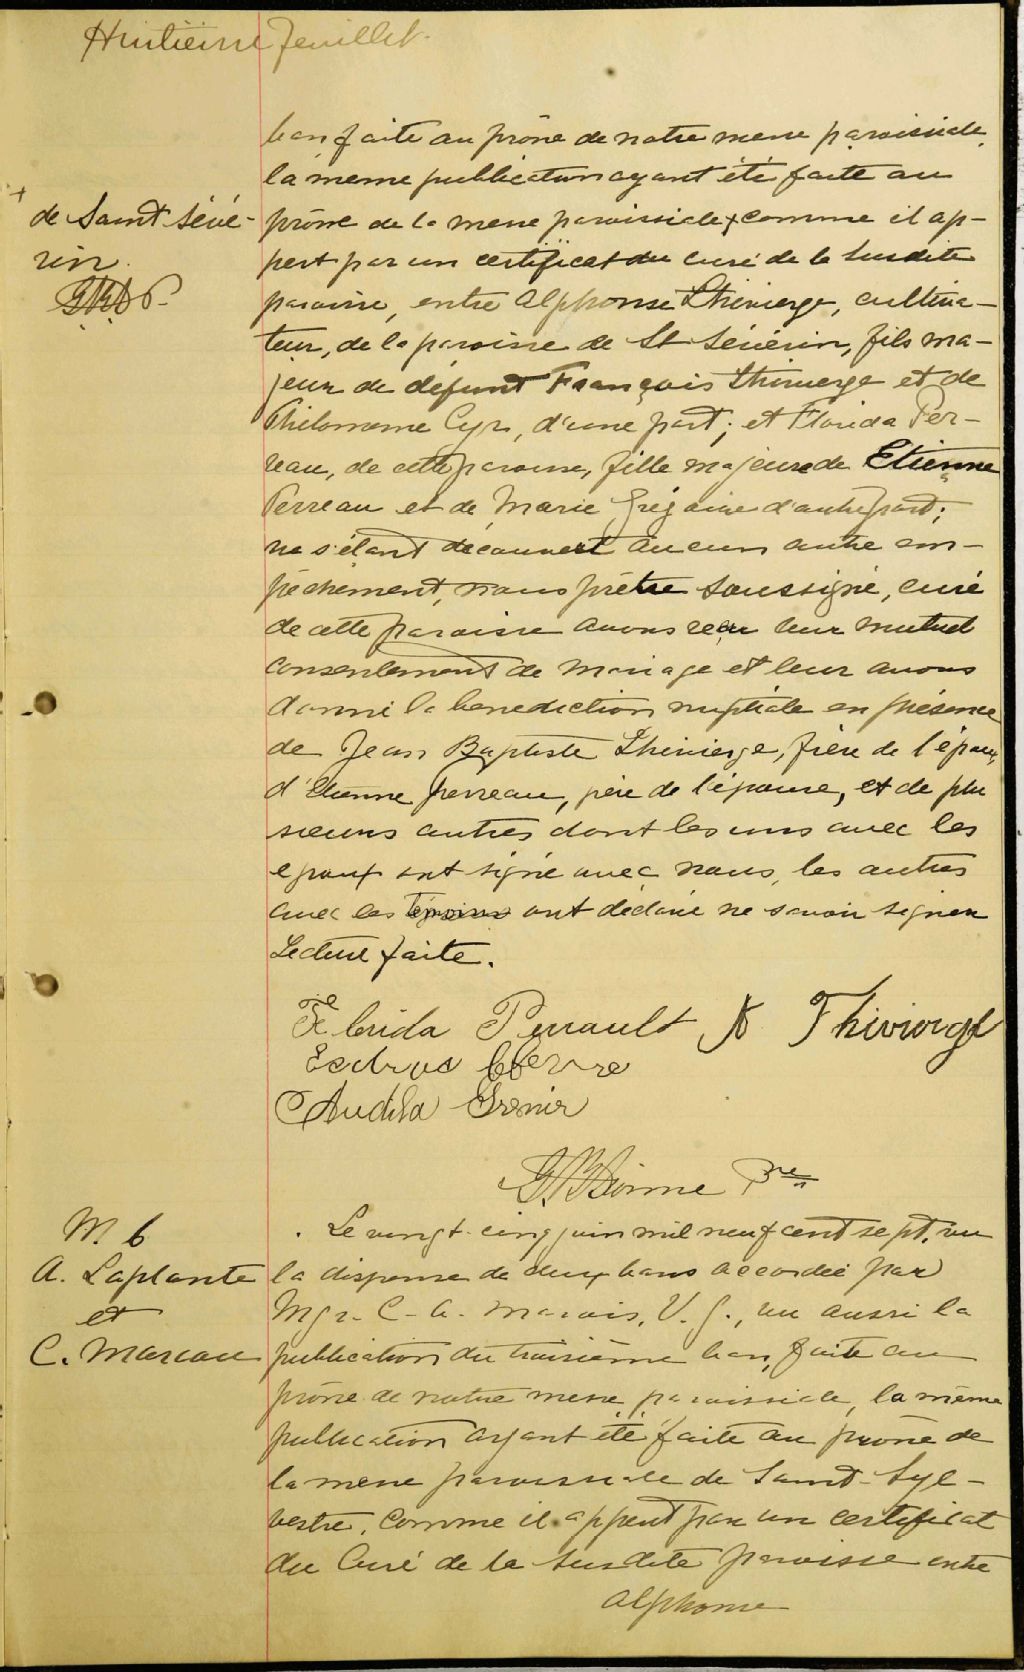 Huitième feuillet.
ban faite au prône de notre messe paroissiale,
la même publication ayant été faite au
+
de Saint Sévé-
rin.
prône de la messe paroissiale, + comme il ap-
pert par un certificat du curé de la susdite
paroisse, entre Alphonse Thivierge, cultiva-
teur, de la paroisse de St Sévérin, fils ma-
jeur de défunt François Thivierge et de
Philomène Cyr, d'une part; et Florida Per-
reau, de cette paroisse, fille majeure de Etienne
Perreau et de Marie Grégoire d'autre part;
ne s'étant découvert aucun autre em-
pêchement, nous prêtre soussigné, curé
de cette paroisse avons reçu leur mutuel
consentement de mariage et leur avons
donné la bénédiction nuptiale en présence
de Jean Baptiste Thivierge, frère de l'époux,
d'Etienne Perreau, père de l'épouse, et de plu
sieurs autres dont les uns avec les
epoux ont signé avec nous, les autres
avec les témoins ont déclaré ne savoir signer
Lecture faite.
Florida Perrault A Thivierge
Audila Grenier
J. B. Dionne Ptre
M. 6
A. Laplante
et
C. Marcoux
Le vingt-cinq juin mil neuf cent sept, vu
la dispense de deux bans accordée par
Mgr. C-A. Marois, V. G., vu aussi la
publication du troisième ban, faite au
prône de notre messe paroissiale, la même
publication ayant été faite au prône de
la messe paroissiale de Saint-Syl-
vestre, comme il appert par un certificat
du Curé de la susdite paroisse entre
Alphonse